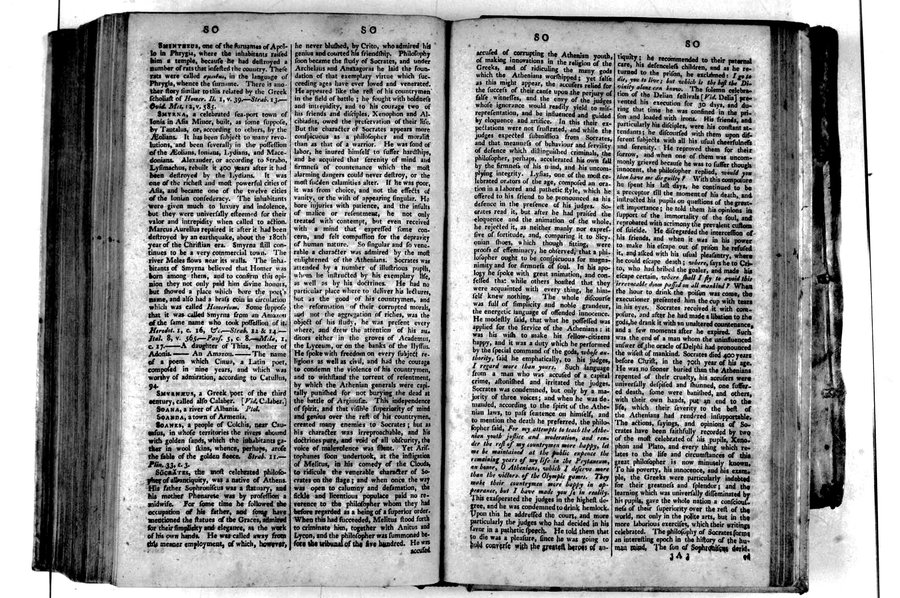 SO
SO
SMINTHEUS, one of the surnames of Apol-
lo in Phrygia, where the inhabitants raised
him a temple, because he had destroyed a
number of rats that infested the country. These
rats were called σμινθαι, in the language of
Phrygia, whence the surname. There is ano-
ther story similar to this related by the Greek
scholiast of Homer. Il. 1, v. 39.—Strab. 13.—
Ovid. Met. 12, v. 585.
SMYRNA, a celebrated sea-port town of
Ionia in Asia Minor, built, as some suppose,
by Tantalus, or, according to others, by the
Æolians. It has been subject to many revo-
lutions, and been severally in the possession
of the Æolians, Ionians, Lydians, and Mace-
donians. Alexander, or according to Strabo,
Lysimachus, rebuilt it 400 years after it had
been destroyed by the Lydians. It was
one of the richest and most powerful cities of
Asia, and became one of the twelve cities
of the Ionian confederacy. The inhabitants
were given much to luxury and indolence,
but they were universally esteemed for their
valor and intrepidity when called to action.
Marcus Aurelius repaired it after it had been
destroyed by an earthquake, about the 180th
year of the Christian era. Smyrna still con-
tinues to be a very commercial town. The
river Meles flows near its walls. The inha-
bitants of Smyrna believed that Homer was
born among them, and to confirm this opi-
nion they not only paid him divine honors,
but showed a place which bore the poet's
name, and also had a brass coin in circulation
which was called Homerium. Some suppose
that it was called Smyrna from an Amazon
of the same name who took possession of it.
Herodot. 1, c. 16, &c.—Strab. 12 & 14.—
Ital. 8, v. 565.—Paus. 5, c. 8.—Mela, 1,
c. 17.——A daughter of Thias, mother of
Adonis.——An Amazon.——The name
of a poem which Cinna, a Latin poet,
composed in nine years, and which was
worthy of admiration, according to Catullus,
94.
SMYRNÆUS, a Greek poet of the third
century, called also Calaber. [Vid. Calaber.]
SOANA, a river of Albania. Ptol.
SOANDA, a town of Armenia.
SOANES, a people of Colchis, near Cau-
casus, in whose territories the rivers abound
with golden sands, which the inhabitants ga-
ther in wool skins, whence, perhaps, arose
the fable of the golden fleece. Strab. 11.—
Plin. 33, c. 3.
SŎCRĂTES, the most celebrated philoso-
pher of all antiquity, was a native of Athens.
His father Sophroniscus was a statuary, and
his mother Phenarete was by profession a
midwife. For some time he followed the
occupation of his father, and some have
mentioned the statues of the Graces, admired
for their simplicity and elegance, as the work
of his own hands. He was called away from
this meaner employment, of which, however,
he never blushed, by Crito, who admired his
genius and courted his friendship. Philosophy
soon became the study of Socrates, and under
Archelaus and Anaxagoras he laid the foun-
dation of that exemplary virtue which suc-
ceeding ages have ever loved and venerated.
He appeared like the rest of his countrymen
in the field of battle; he fought with boldness
and intrepidity, and to his courage two of
his friends and disciples, Xenophon and Al-
cibiades, owed the preservation of their life.
But the character of Socrates appears more
conspicuous as a philosopher and moralist
than as that of a warrior. He was fond of
labor, he inured himself to suffer hardships,
and he acquired that serenity of mind and
firmness of countenance which the most
alarming dangers could never destroy, or the
most sudden calamities alter. If he was poor,
it was from choice, and not the effects of
vanity, or the wish of appearing singular. He
bore injuries with patience, and the insults
of malice or resentment, he not only
treated with contempt, but even received
with a mind that expressed some con-
cern, and felt compassion for the depravity
of human nature. So singular and so vene-
rable a character was admired by the most
enlightened of the Athenians. Socrates was
attended by a number of illustrious pupils,
whom he instructed by his exemplary life,
as well as by his doctrines. He had no
particular place where to deliver his lectures,
but as the good of his countrymen, and
the reformation of their corrupted morals,
and not the aggregation of riches, was the
object of his study, he was present every
where, and drew the attention of his au-
ditors either in the groves of Academus,
the Lyceum, or on the banks of the Ilyssus.
He spoke with freedom on every subject re-
ligious as well as civil, and had the courage
to condemn the violence of his countrymen,
and to withstand the torrent of resentment,
by which the Athenian generals were capi-
tally punished for not burying the dead at
the battle of Arginusæ. This independence
of spirit, and that visible superiority of mind
and genius over the rest of his countrymen,
created many enemies to Socrates; but as
his character was irreproachable, and his
doctrines pure, and void of all obscurity, the
voice of malevolence was silent. Yet Aris-
tophanes soon undertook, at the instigation
of Melitus, in his comedy of the Clouds,
to ridicule the venerable character of So-
crates on the stage; and when once the way
was open to calumny and defamation, the
fickle and licentious populace paid no re-
verence to the philosopher whom they had
before regarded as a being of a superior order.
When this had succeeded, Melitus stood forth
to criminate him, together with Anitus and
Lycon, and the philosopher was summoned be-
fore the tribunal of the five hundred. He was
accused
SO
SO
accused of corrupting the Athenian youth,
of making innovations in the religion of the
Greeks, and of ridiculing the many gods
which the Athenians worshipped; yet false
as this might appear, the accusers relied for
the success of their cause upon the perjury of
false witnesses, and the envy of the judges,
whose ignorance would readily yield to mis-
representation, and be influenced and guided
by eloquence and artifice. In this their ex-
pectations were not frustrated, and while the
judges expected submission from Socrates,
and that meanness of behaviour and servility
of defence which distinguished criminals, the
philosopher, perhaps, accelerated his own fall
by the firmness of his mind, and his uncom-
plying integrity. Lysias, one of the most ce-
lebrated orators of the age, composed an ora-
tion in a labored and pathetic style, which he
offered to his friend to be pronounced as his
defence in the presence of his judges. So-
crates read it, but after he had praised the
eloquence and the animation of the whole,
he rejected it, as neither manly nor expres-
sive of fortitude, and, comparing it to Sicy-
onian shoes, which though fitting, were
proofs of effeminacy, he observed, that a phi-
losopher ought to be conspicuous for magna-
nimity and for firmness of soul. In his apo-
logy he spoke with great animation, and con-
fessed that while others boasted that they
were acquainted with every thing, he him-
self knew nothing. The whole discourse
was full of simplicity and noble grandeur,
the energetic language of offended innocence.
He modestly said, that what he possessed was
applied for the service of the Athenians; it
was his wish to make his fellow-citizens
happy, and it was a duty which he performed
by the special command of the gods, whose au-
thority, said he emphatically, to his judges,
I regard more than yours. Such language
from a man who was accused of a capital
crime, astonished and irritated the judges.
Socrates was condemned, but only by a ma-
jority of three voices; and when he was de-
manded, according to the spirit of the Athe-
nian laws, to pass sentence on himself, and
to mention the death he preferred, the philo-
sopher said, For my attempts to teach the Athe-
nian youth justice and moderation, and ren-
der the rest of my countrymen more happy, let
me be maintained at the public expence the
remaining years of my life in the Prytaneum,
an honor, O Athenians, which I deserve more
than the victors of the Olympic games. They
make their countrymen more happy in ap-
pearance, but I have made you so in reality.
This exasperated the judges in the highest de-
gree, and he was condemned to drink hemlock.
Upon this he addressed the court, and more
particularly the judges who had decided in his
favor in a pathetic speech. He told them that
to die was a pleasure, since he was going to
hold converse with the greatest heroes of an-
tiquity; he recommended to their paternal
care, his defenceless children, and as he re-
turned to the prison, he exclaimed: I go to
die, you to live; but which is the best the Di-
vinity alone can know. The solemn celebra-
tion of the Delian festivals [Vid. Delia] pre-
vented his execution for 30 days, and du-
ring that time he was confined in the pri-
son and loaded with irons. His friends, and
particularly his disciples, were his constant at-
tendants; he discoursed with them upon dif-
ferent subjects with all his usual cheerfulness
and serenity. He reproved them for their
sorrow, and when one of them was uncom-
monly grieved because he was to suffer though
innocent, the philosopher replied, would you
then have me die guilty? With this composure
he spent his last days, he continued to be
a preceptor till the moment of his death, and
instructed his pupils on questions of the great-
est importance; he told them his opinions in
support of the immortality of the soul, and
reprobated with acrimony the prevalent custom
of suicide. He disregarded the intercession of
his friends, and when it was in his power
to make his escape out of prison he refused
it, and asked with his usual pleasantry, where
he could escape death; where, says he to Cri-
to, who had bribed the gaoler, and made his
escape certain, where shall I fly to avoid this
irrevocable doom passed on all mankind? When
the hour to drink the poison was come, the
executioner presented him the cup with tears
in his eyes. Socrates received it with com-
posure, and after he had made a libation to the
gods, he drank it with an unaltered countenance,
and a few moments after he expired. Such
was the end of a man whom the uninfluenced
answer of the oracle of Delphi had pronounced
the wisest of mankind. Socrates died 400 years
before Christ, in the 70th year of his age.
He was no sooner buried than the Athenians
repented of their cruelty, his accusers were
universally despised and shunned, one suffer-
ed death, some were banished, and others,
with their own hands, put an end to the
life, which their severity to the best of
the Athenians had rendered insupportable.
The actions, sayings, and opinions of So-
crates have been faithfully recorded by two
of the most celebrated of his pupils, Xeno-
phon and Plato, and every thing which re-
lates to the life and circumstances of this
great philosopher is now minutely known.
To his poverty, his innocence, and his exam-
ple, the Greeks were particularly indebted
for their greatness and splendor; and the
learning which was universally disseminated by
his pupils, gave the whole nation a conscious-
ness of their superiority over the rest of the
world, not only in the polite arts, but in the
more laborious exercises, which their writings
celebrated. The philosophy of Socrates forms
an interesting epoch in the history of the hu-
man mind. The son of Sophroniscus derid-
3 A 3
ed